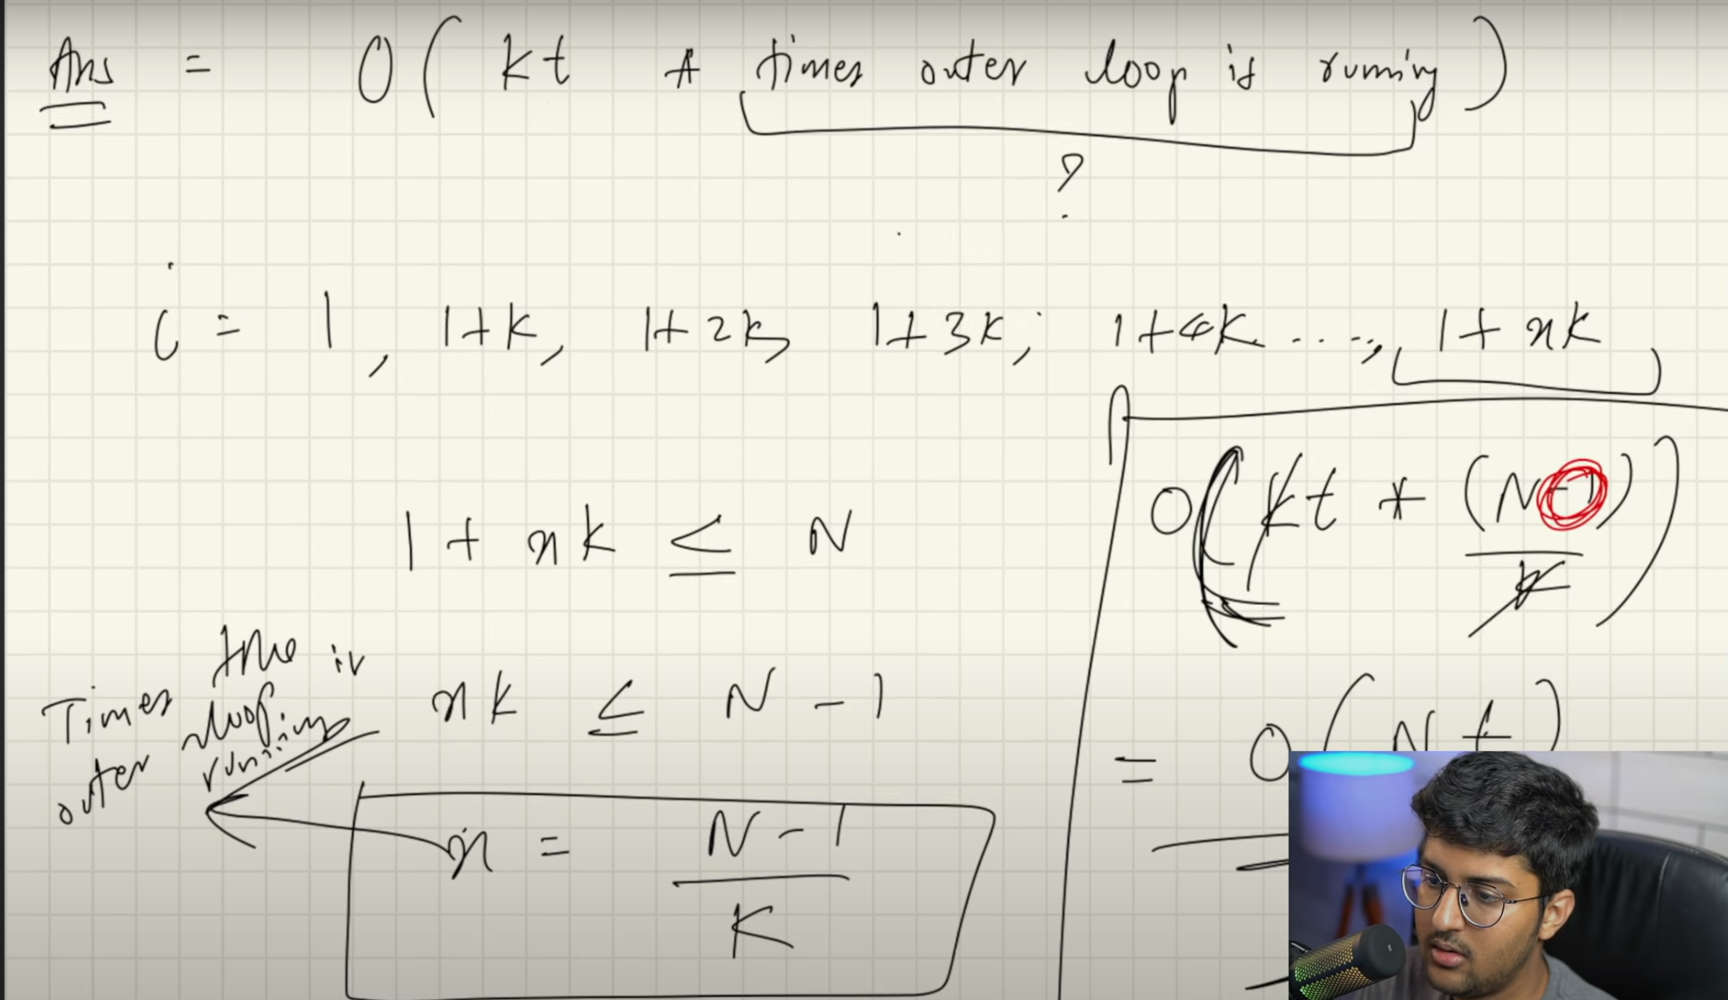 Ans = O( kt * times outer loop is running )
?
i = 1, 1+k, 1+2k, 1+3k, 1+4k ...., 1+xk
1 + xk ≤ N
O( kt * (N-1)/k )
xk ≤ N - 1
Times the
outer loop is
running
= O(Nt)
x = N-1/K